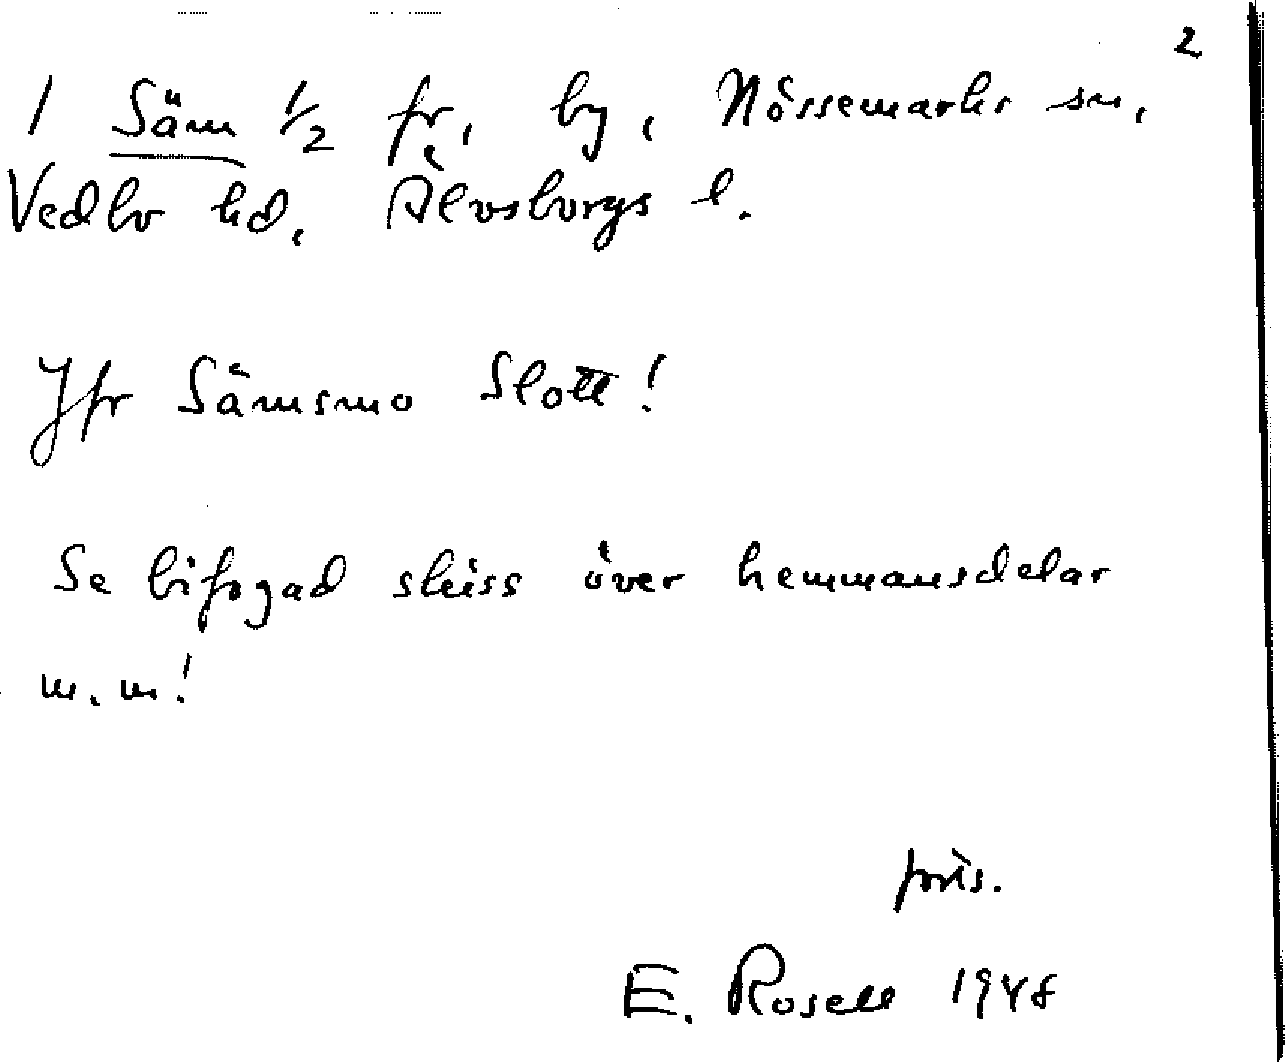 2
1 Säm 1/2 fr, by, Nössemarks sn,
Vedbo hd, Älvsborgs l.
Jfr Sämsmo Slott!
Se bifogad skiss över hemmansdelar
m.m!
E. Rosell 1948